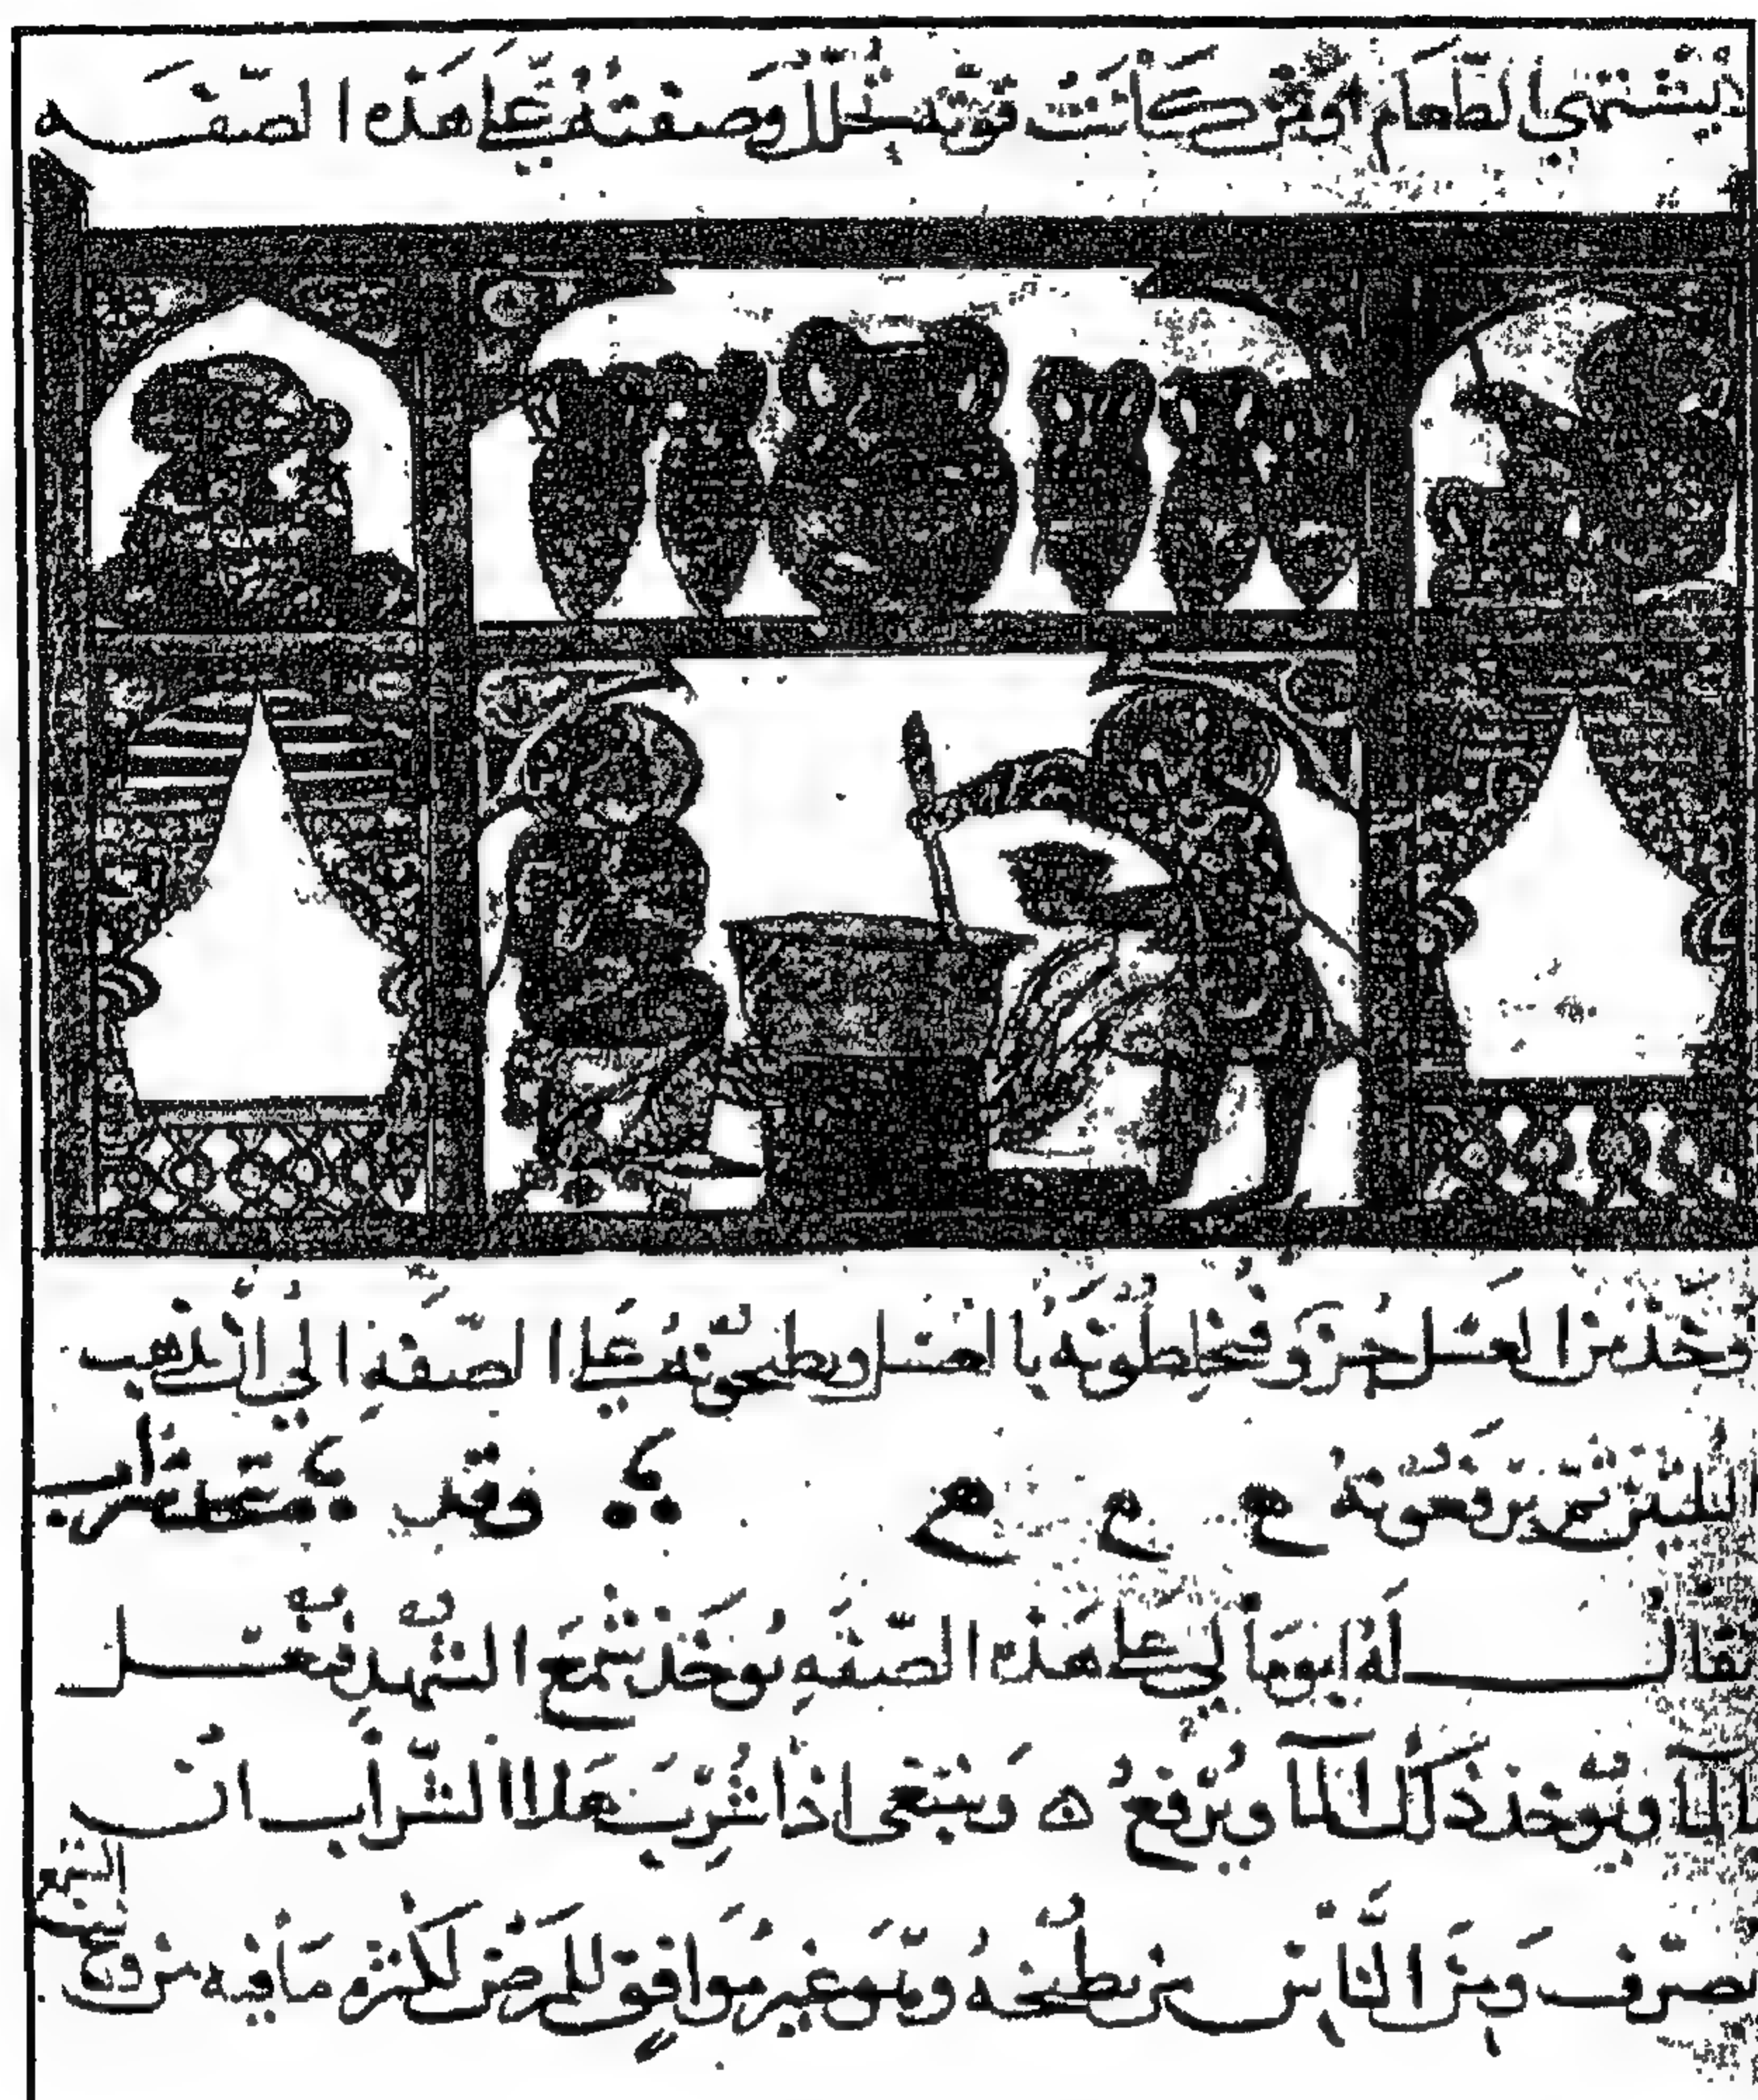 يشتهي الطعام ومن كانت قوته تحلل وصفته على هذه الصفه
يوخذ من العسل جزو فيخلطونه بالعسل ويطبخونه على الصفه الى ان يذهب
ثم يرفعونه وقد يعمل شراب
يقال له ايومالي على هذه الصفه يوخذ شمع الشهد فيغسل
بالما ويوخذ ذلك الما ويرفع ه وينبغي اذا شرب هذا الشراب ان
يصرف ومن الناس من يطبخه وهو غير موافق للمرضى لكثره ما فيه من وسخ
الشمع